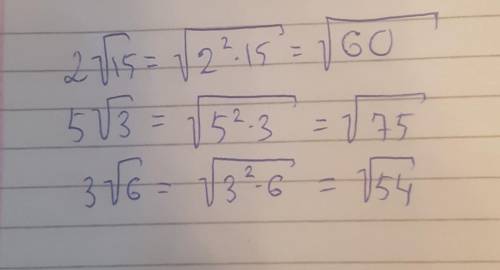 2√15 = √2²·15 = √60
5√3 = √5²·3 = √75
3√6 = √3²·6 = √54